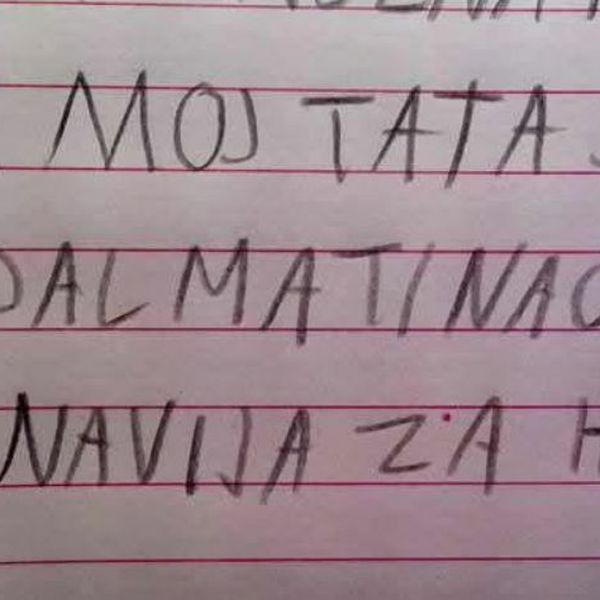 MOJ TATA
DALMATINAC
NAVIJA ZA